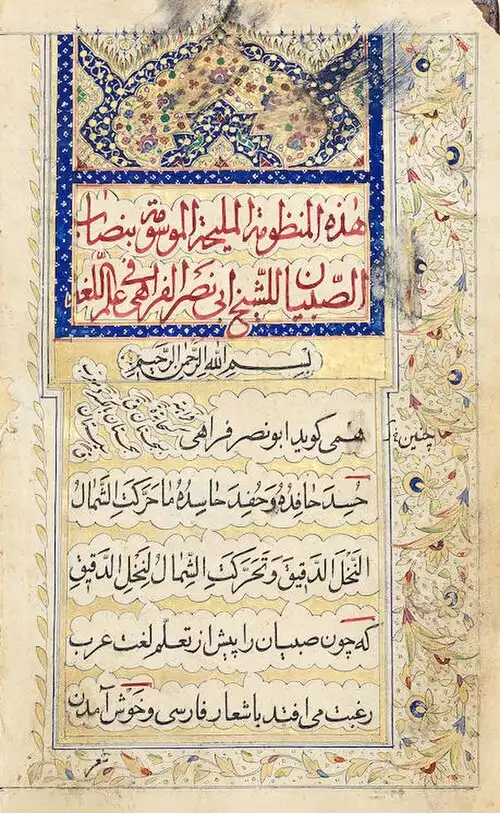 هذه المنظومة المليحة الموسومة بنصاب
الصبيان للشیخ ابی نصر الفراهی فی علم اللغه
بسم الله الرحمن الرحیم
همی کوید ابو نصر فراهی
چنین
حُسِدَ حَافِدُهُ وَحُفِدَ حَاسِدُهُ مَا حَرَّكَتِ الشَّمَالُ
النَّخْلَ الدَّقِيقَ وَتَحَرَّكَتِ الشِّمَالُ لِنَخْلِ الدَّقِيقِ
که چون صبیان را پیش از تعلّم لغت عرب
رغبت می افتد باشعار فارسی و خوش آمدن
شعر